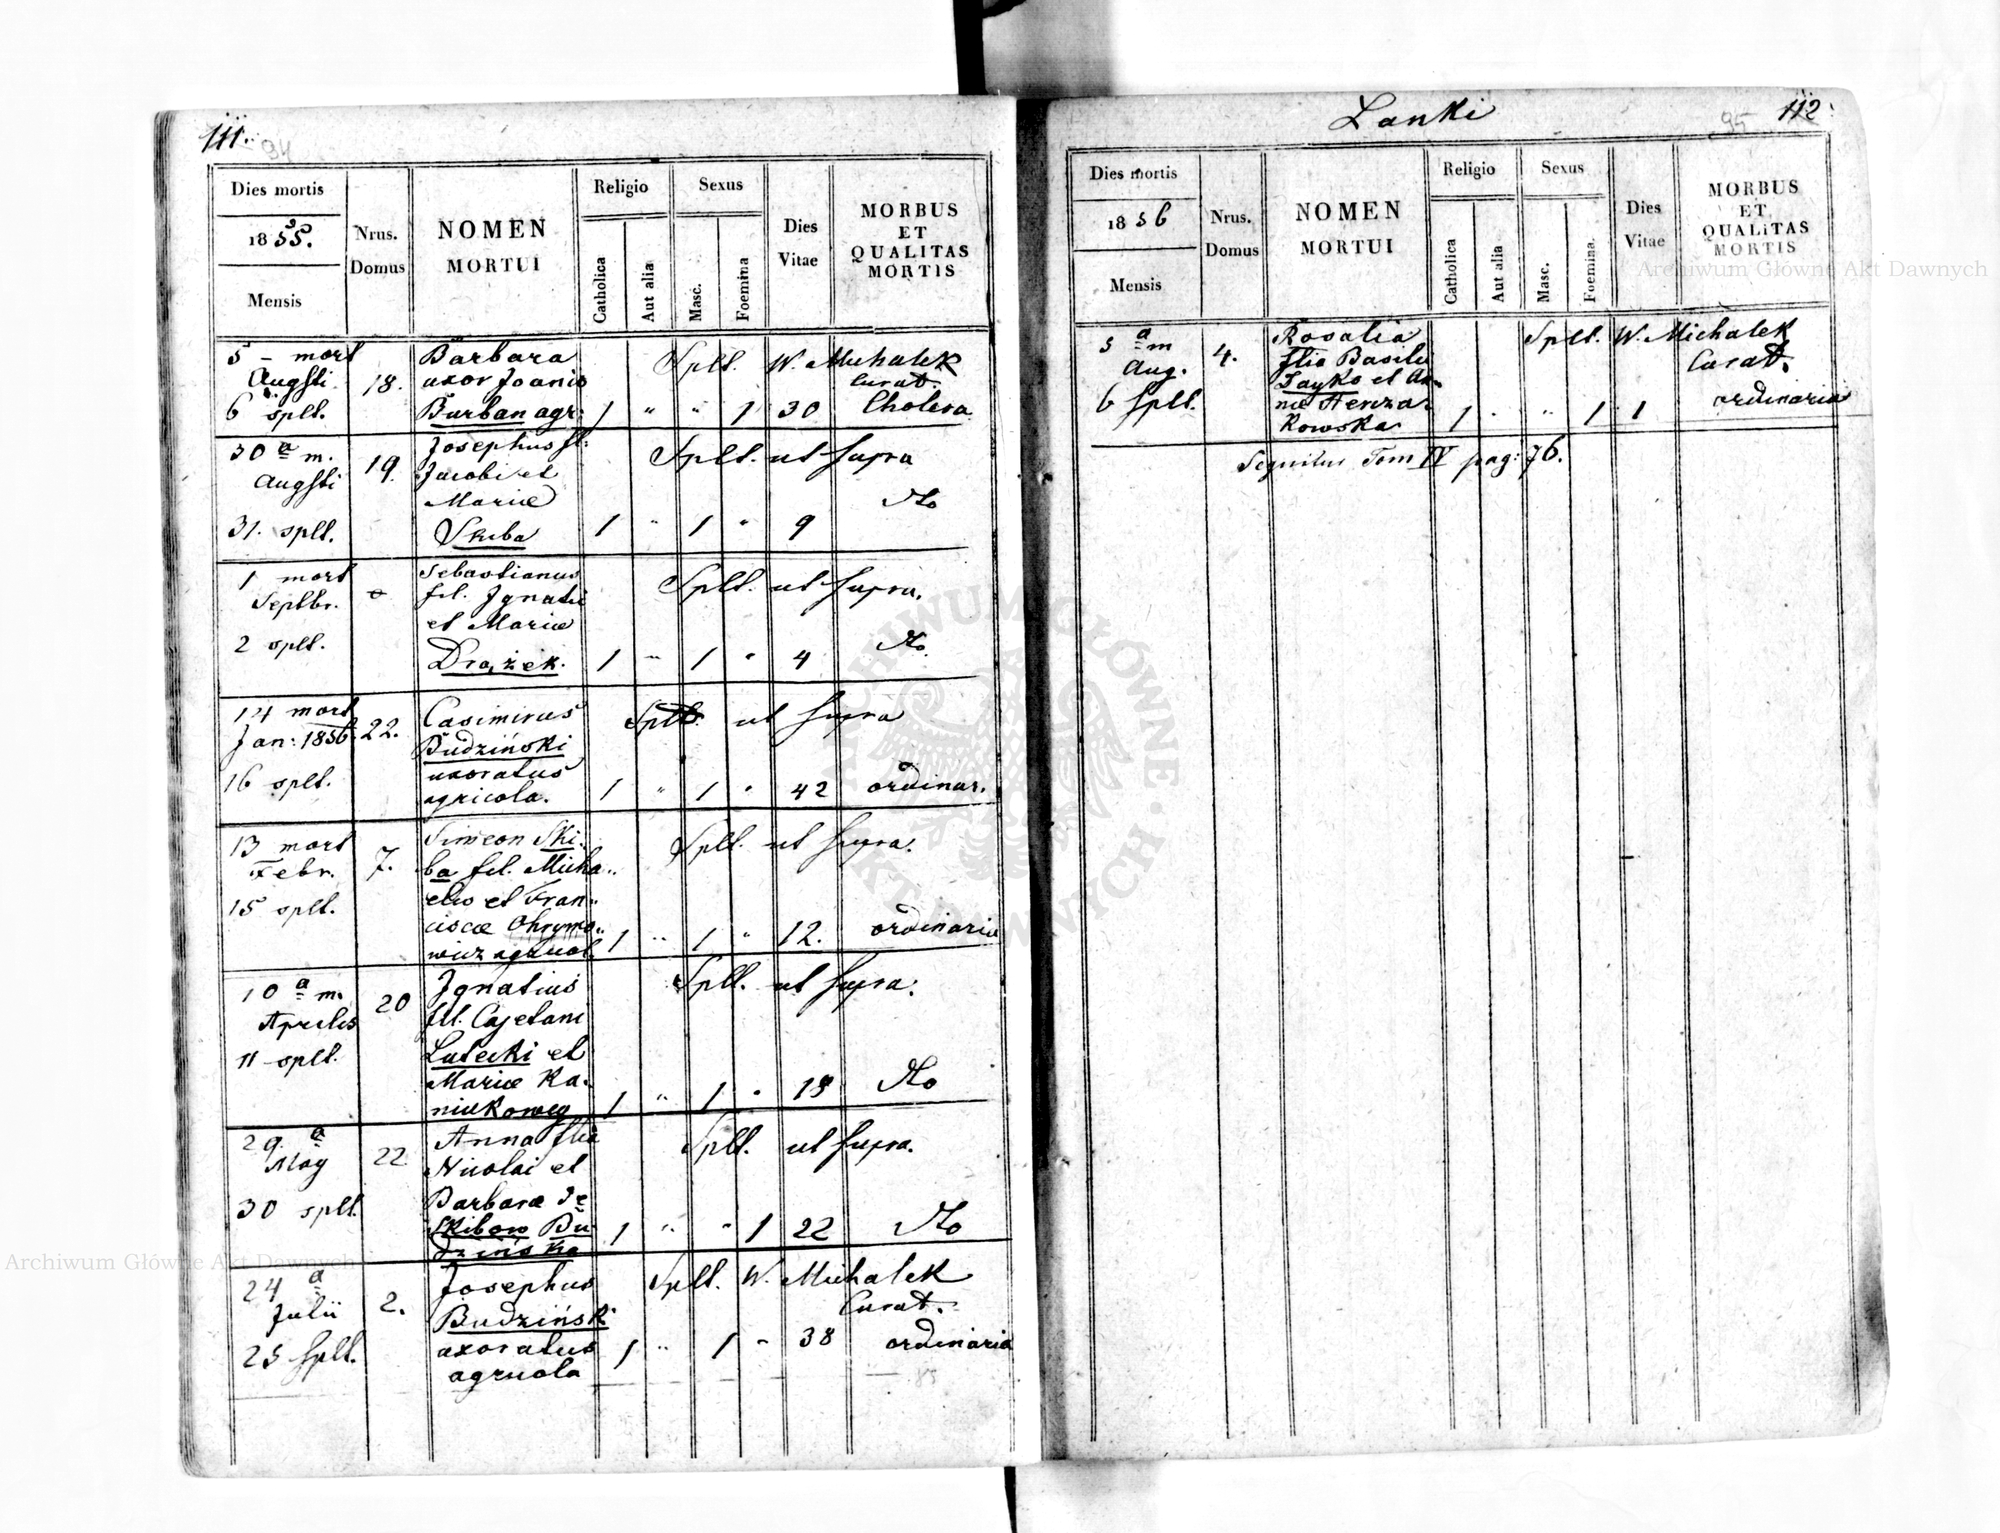 111.
94
Dies mortis
1855.
Mensis
Nrus.
Domus
NOMEN
MORTUI
Religio
Catholica
Aut alia
Sexus
Masc.
Foemina
Dies
Vitae
MORBUS
ET
QUALITAS
MORTIS
5 - mort
Augsti.
6 splt.
18.
Barbara
uxor Joanis
Burban agr:
1 " " 1 30
Splt. W. Michalek
Curat.
Cholera
30 a m.
Augsti
31. splt.
19.
Josephus fl:
Jacobi et
Mariæ
Skiba
1 " 1 " 9
Splt. ut supra
1 mort
Septbr.
2 splt.
Sebastianus
fil. Ignatii
et Mariæ
Drążek.
1 " 1 " 4
Splt. ut supra.
14 mort
Jan: 1856.
16 splt.
22.
Casimirus
Budziński
uxoratus
agricola.
1 " 1 " 42
Splt. ut supra
ordinar.
13 mort
Febr.
15 splt.
7.
Simeon Ski-
ba fil. Micha-
elis et Fran-
ciscæ Ohrymo-
wicz agricol.
1 " 1 " 12.
Splt. ut supra.
ordinaria
10 a m.
Aprilis
11 splt.
20
Ignatius
fil. Cajetani
Lutecki et
Mariæ Ka-
niukowey
1 " 1 "
Splt. ut supra.
29. a
May
30 splt.
22
Anna flia
Nicolai et
Barbaræ de
Skibow Bu-
dzińska
1 " " 1 22
Splt. ut supra.
24 a
Julii
25 splt.
2.
Josephus
Budziński
uxoratus
agricola
1 " 1 " 38
Splt. W. Michalek
Curat.
ordinaria
85
Lanki
95
112.
Dies mortis
1856
Mensis
Nrus.
Domus
NOMEN
MORTUI
Religio
Catholica
Aut alia
Sexus
Masc.
Foemina.
Dies
Vitae
MORBUS
ET
QUALITAS
MORTIS
5 a m
Aug.
6 splt.
4.
Rosalia
flia Basilii
et An-
næ
kowska
1 " " 1 1
Splt. W. Michalek
Curat.
ordinaria
Sequitur Tom IV pag: 76.
Archiwum Główne Akt Dawnych
Archiwum Główne Akt Dawnych
ARCHIWUM GŁÓWNE AKT DAWNYCH